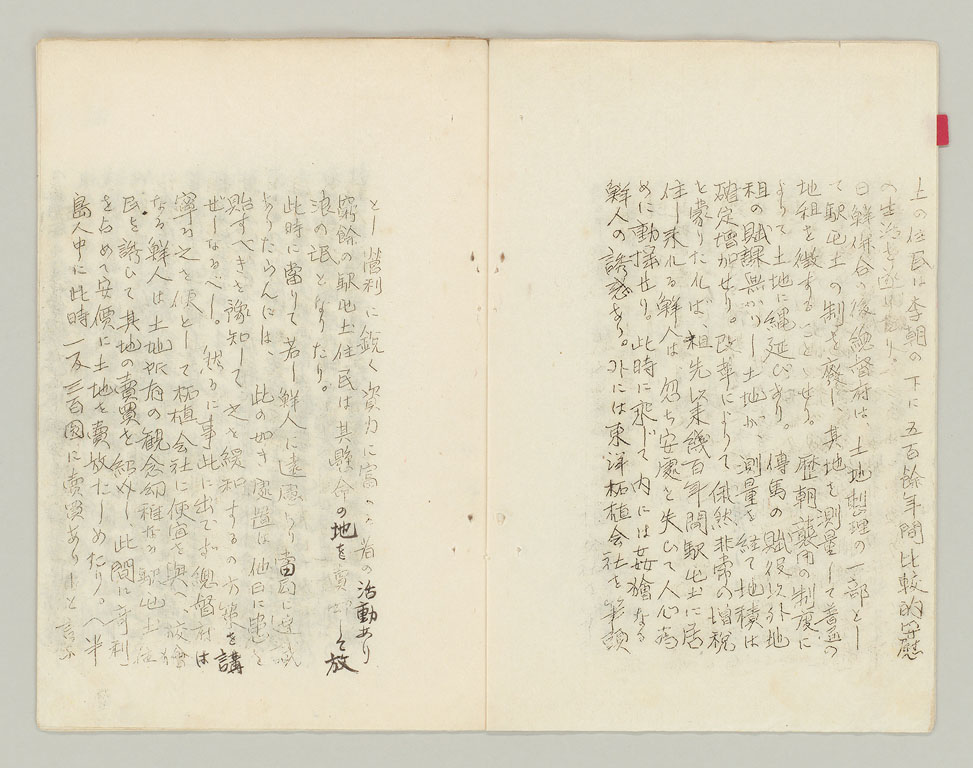 土の住民は李朝の下に五百餘年間比較的安慰
の生活を送れり。
日鮮併合の後總督府は、土地整理の一部とし
て駅屯土の制を廃し、其地を測量して普通の
地租を徴することゝせり。歴朝襲用の制度に
よりて土地に縄延びあり。傳馬の賦役以外地
租の賦課無かりし土地が、測量を経て地積は
確定増加せり。改革によりて俄然非常の増税
を蒙りたれば、祖先以来幾百年間駅屯土に居
住し来れる鮮人は、忽ち安處を失ひて人心為
めに動揺せり。此時に乗じて内には姦獪なる
鮮人の誘惑あり。外には東洋拓植会社を筆頭
とし営利に鋭く資力に富める者の活動あり
窮餘の駅屯土住民は其懸命の地を賣却して放
浪の民となりたり。
此時に當りて若し鮮人に遠慮あり當局に
ありたらんには、此の如き處置は他日に患を
貽すべきを豫知して之を緩和するの方策を講
ぜしなるべし。然るに事此に出でず總督府は
寧ろ之を便として拓植会社に便宜を與へ
なる鮮人は土地所有の観念幼稚なる駅屯土住
民を誘ひて其地の賣買を紹介し、此間に奇利
を占めて安價に土地を賣放たしめたり。（半
島人中に此時一反三百圓に賣買ありしと言